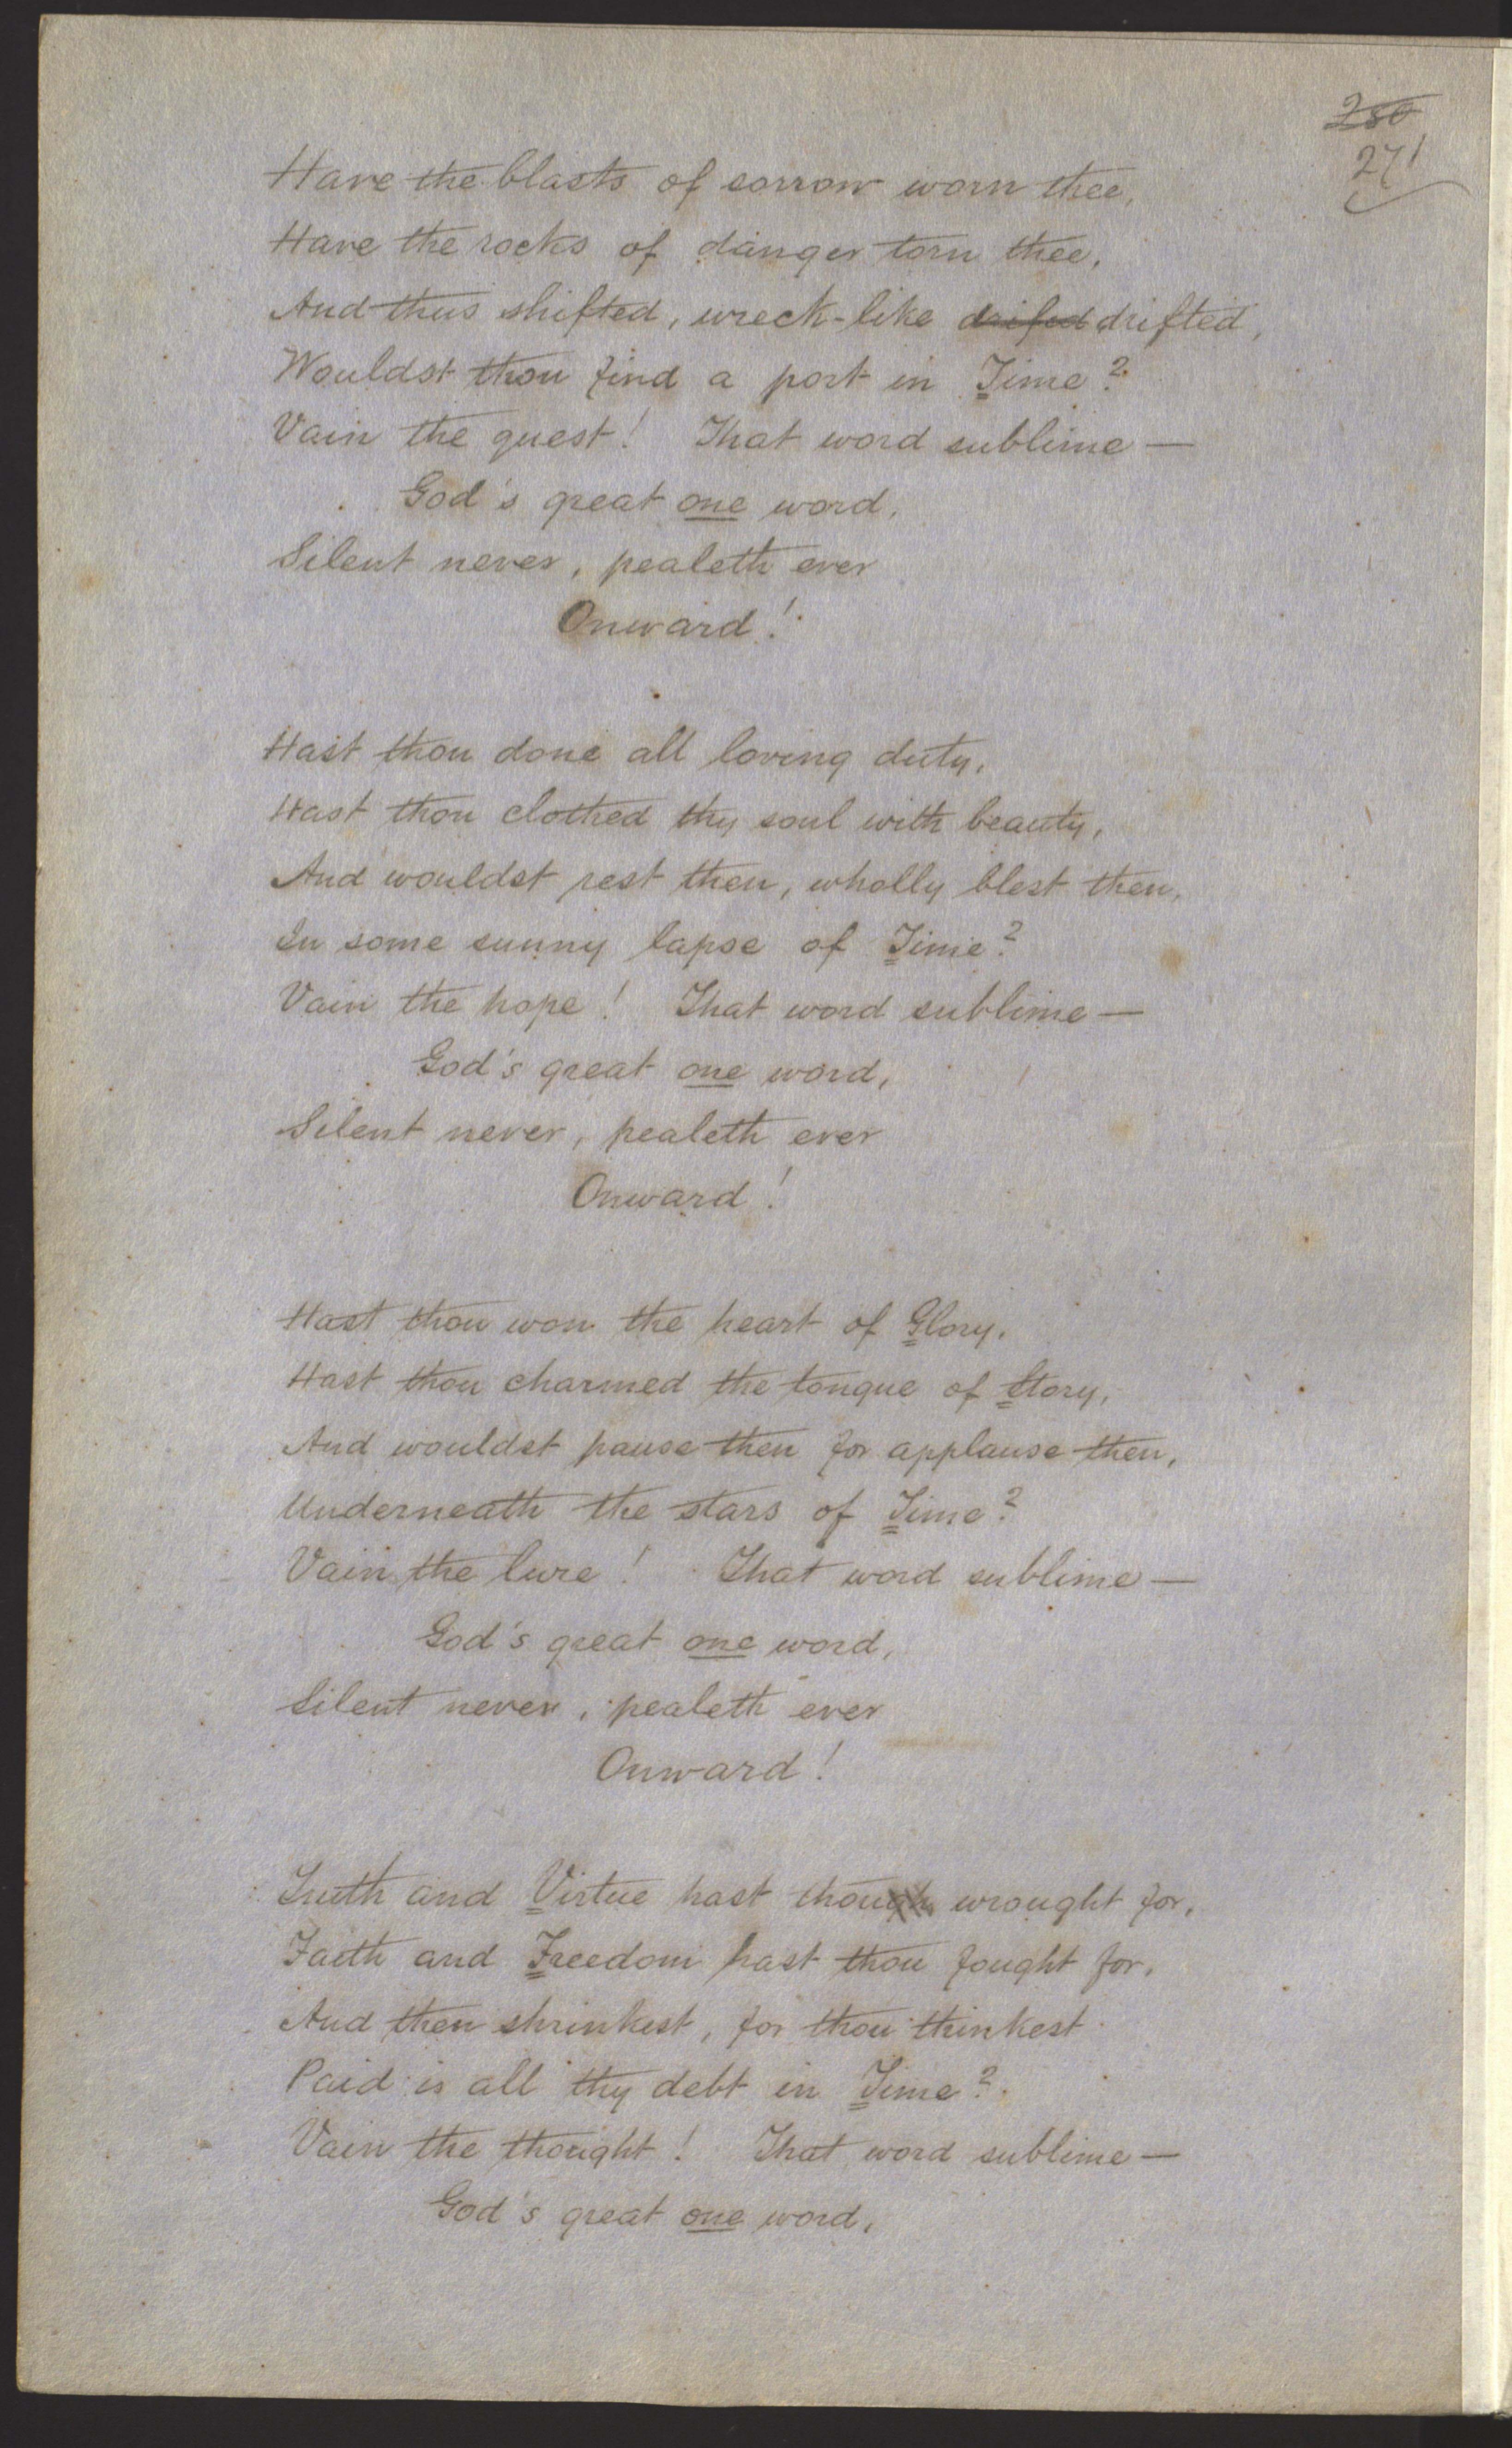 280
271
Have the blasts of sorrow worn thee,
Have the rocks of danger torn thee,
And thus shifted, wreck-like drifed drifted,
Wouldst thou find a port in Time?
Vain the quest! That word sublime —
God's great one word,
Silent never, pealeth ever
Onward!
Hast thou done all loving duty,
Hast thou clothed thy soul with beauty,
And wouldst rest then, wholly blest then,
In some sunny lapse of Time?
Vain the hope! That word sublime —
God's great one word,
Silent never, pealeth ever
Onward!
Hast thou won the heart of Glory,
Hast thou charmed the tongue of Story,
And wouldst pause then for applause then,
Underneath the stars of Time?
Vain the lure! That word sublime —
God's great one word,
Silent never, pealeth ever
Onward!
Truth and Virtue hast though wrought for,
Faith and Freedom hast thou fought for,
And then shrinkest, for thou thinkest
Paid is all thy debt in Time?
Vain the thought! That word sublime —
God's great one word,